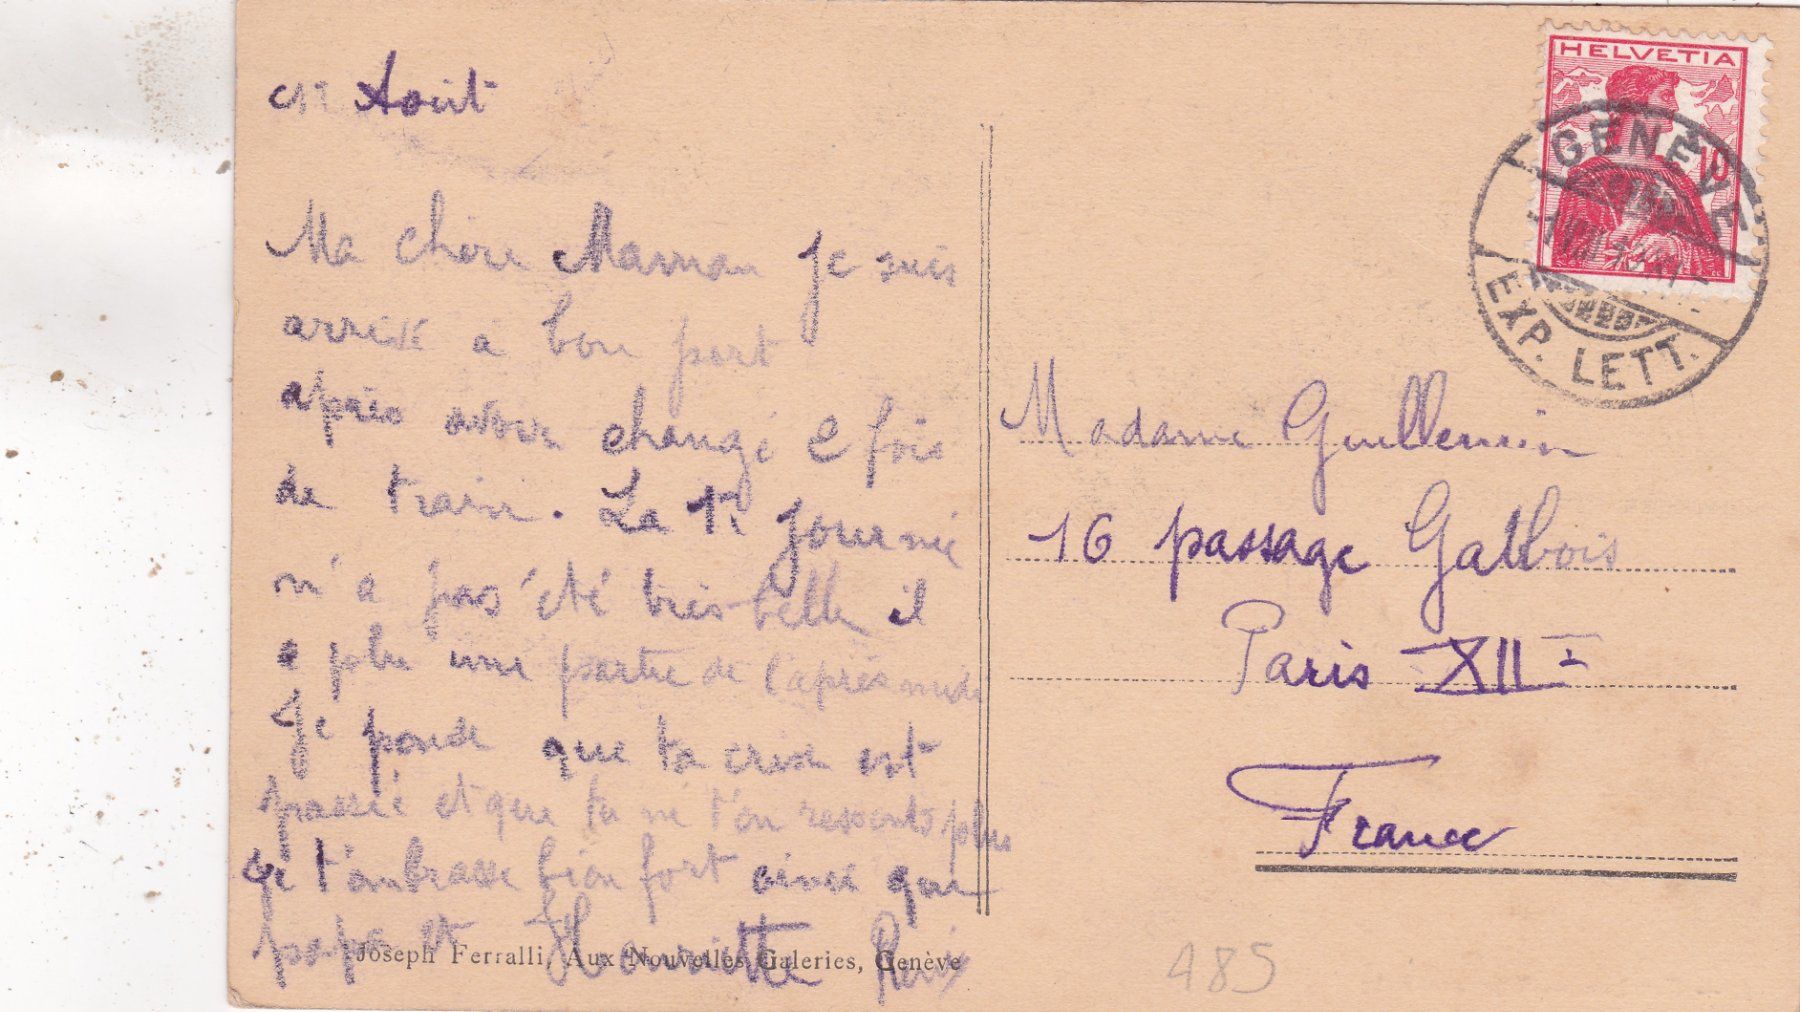 Août
Ma chère Maman je suis
arrivé à bon port
après avoir changé 2 fois
de train. La 1e journée
n'a pas été très belle il
a plu une partie de l'après midi
Je pense que ta crise est
passée et que tu ne t'en ressents plus
je t'embrasse bien fort ainsi que
papa et Henriette
Joseph Ferralli, Aux Nouvelles Galeries, Genève
HELVETIA
10
GENÈVE
EXP. LETT.
Madame Guillemin
16 passage Gatbois
Paris XII
France
485